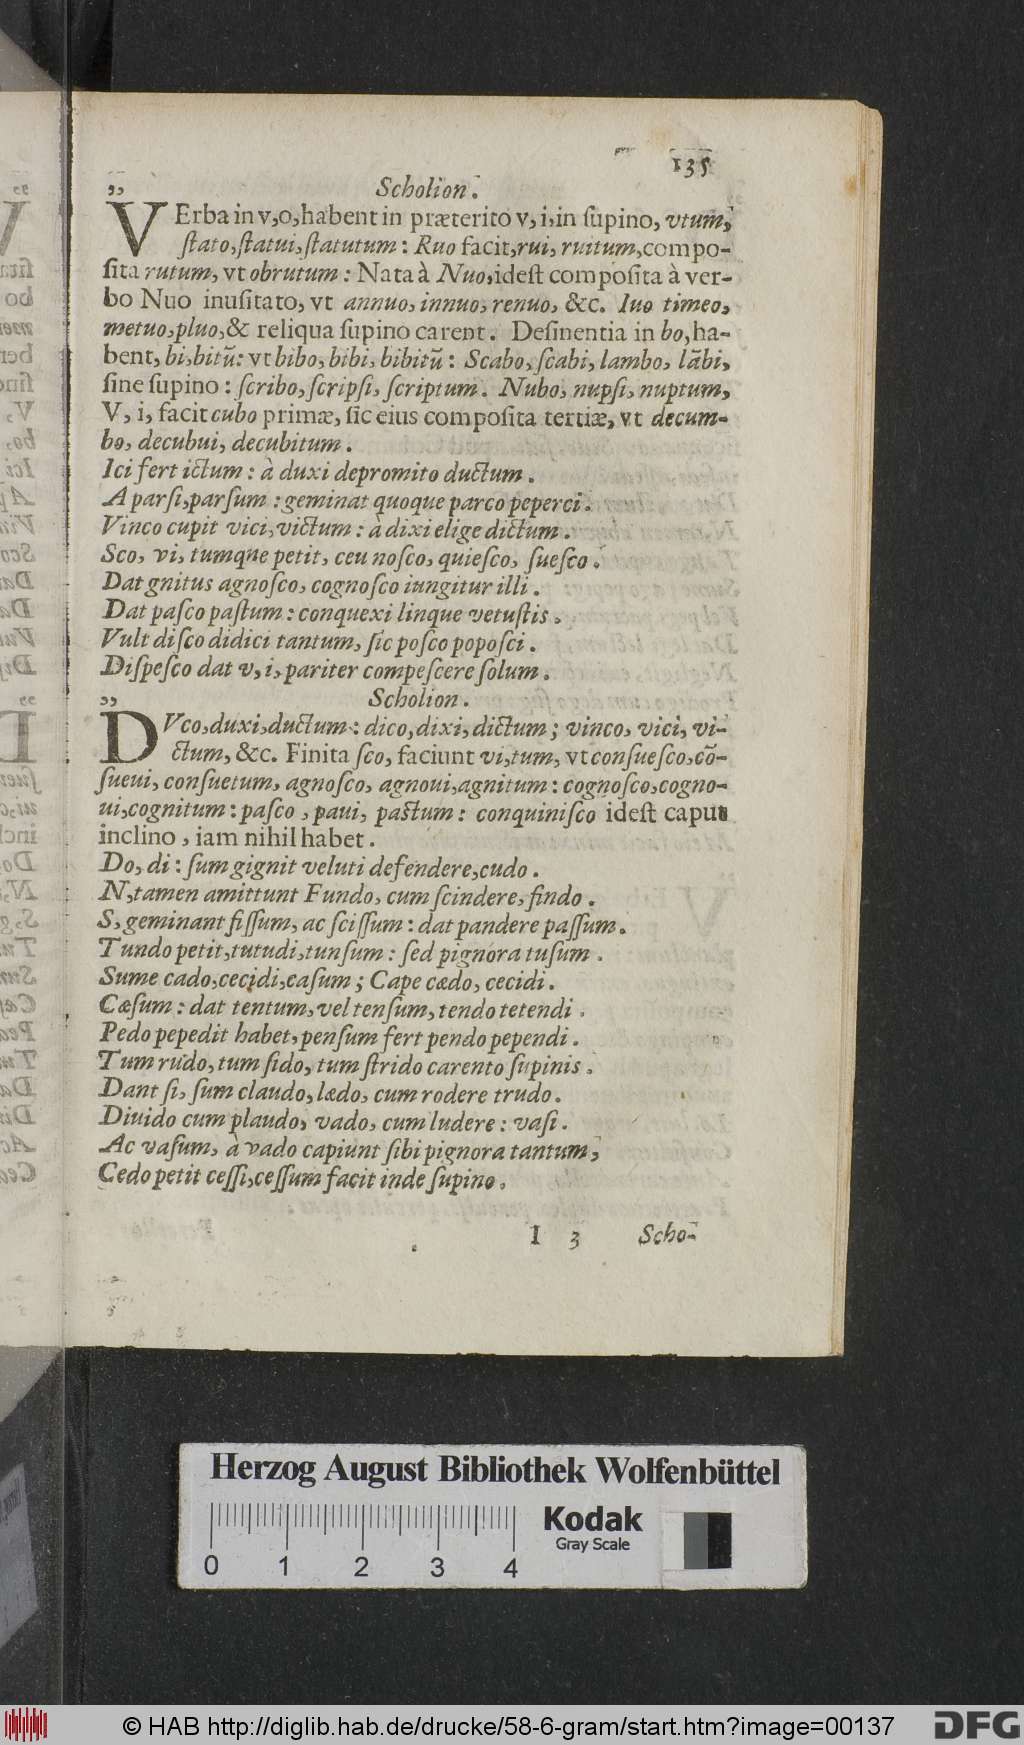 135
Scholion.
„
VErba in v,o,habent in præterito v, i,in ſupino, vtum,
ſtato,ſtatui,ſtatutum: Ruo facit,rui, ruitum,compo-
ſita rutum, vt obrutum: Nata à Nuo,ideſt compoſita à ver-
bo Nuo inuſitato, vt annuo, innuo, renuo, &c. Iuo timeo,
metuo,pluo,& reliqua ſupino carent. Deſinentia in bo,ha-
bent, bi,bitū: vt bibo, bibi, bibitū: Scabo, ſcabi, lambo, lābi,
ſine ſupino: ſcribo, ſcripſi, ſcriptum. Nubo, nupſi, nuptum,
V, i, facit cubo primæ, ſic eius compoſita tertiæ, vt decum-
bo, decubui, decubitum.
Ici fert ictum: à duxi depromito ductum.
A parſi,parſum: geminat quoque parco peperci.
Vinco cupit vici,victum: à dixi elige dictum.
Sco, vi, tumque petit, ceu noſco, quieſco, ſueſco.
Dat gnitus agnoſco, cognoſco iungitur illi.
Dat paſco paſtum: conquexi linque vetuſtis.
Vult diſco didici tantum, ſic poſco popoſci.
Diſpeſco dat v, i, pariter compeſcere ſolum.
„
Scholion.
DVco,duxi,ductum: dico,dixi,dictum; vinco, vici, vi-
ctum, &c. Finita ſco, faciunt vi,tum, vt conſueſco,cō-
ſueui, conſuetum, agnoſco, agnoui,agnitum: cognoſco,cogno-
ui,cognitum: paſco, paui, paſtum: conquiniſco ideſt caput
inclino, iam nihil habet.
Do, di: ſum gignit veluti defendere,cudo.
N,tamen amittunt Fundo, cum ſcindere, findo.
S, geminant fiſſum, ac ſciſſum: dat pandere paſſum.
Tundo petit,tutudi,tunſum: ſed pignora tuſum.
Sume cado,cecidi,caſum; Cape cædo, cecidi.
Cæſum: dat tentum, vel tenſum, tendo tetendi.
Pedo pepedit habet, penſum fert pendo pependi.
Tum rudo, tum ſido, tum ſtrido carento ſupinis.
Dant ſi, ſum claudo, lædo, cum rodere trudo.
Diuido cum plaudo, vado, cum ludere: vaſi.
Ac vaſum, à vado capiunt ſibi pignora tantum,
Cedo petit ceſſi,ceſſum facit inde ſupino.
I 3 Scho-
Herzog August Bibliothek Wolfenbüttel
Kodak
Gray Scale
0 1 2 3 4
© HAB http://diglib.hab.de/drucke/58-6-gram/start.htm?image=00137
DFG